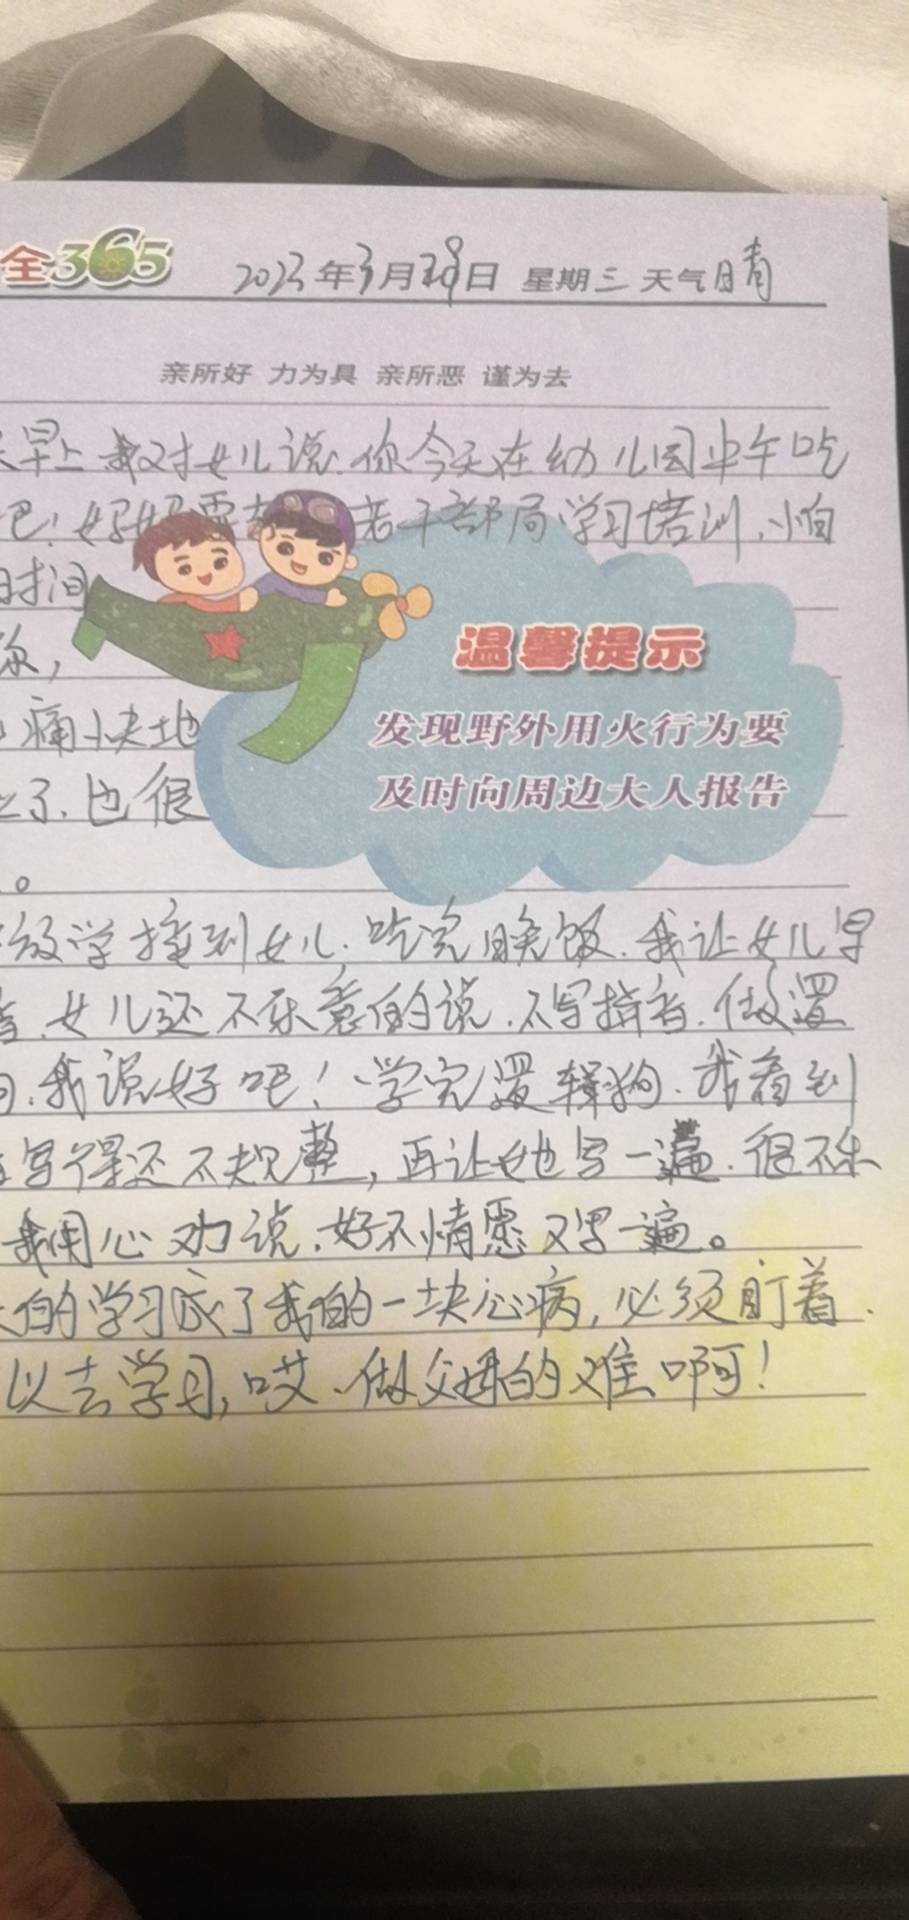 全365 2023年3月29日 星期三 天气晴
亲所好 力为具 亲所恶 谨为去
早上我对女儿说.你今天在幼儿园中午吃
吧!好好 老干部局学习培训.小怕
时间
你,
痛小快地
了.也很
。
学接到女儿.吃完晚饭.我让女儿早
音.女儿还不乐意的说.不写拼音.做逻
.我说好吧!学完逻辑狗.我看到
写得还不规整,再让她写一遍.很不乐
我用心劝说.好不情愿又写一遍。
的学习成了我的一块心病,必须盯着.
以去学习,哎.做父母的难啊!
温馨提示
发现野外用火行为要
及时向周边大人报告